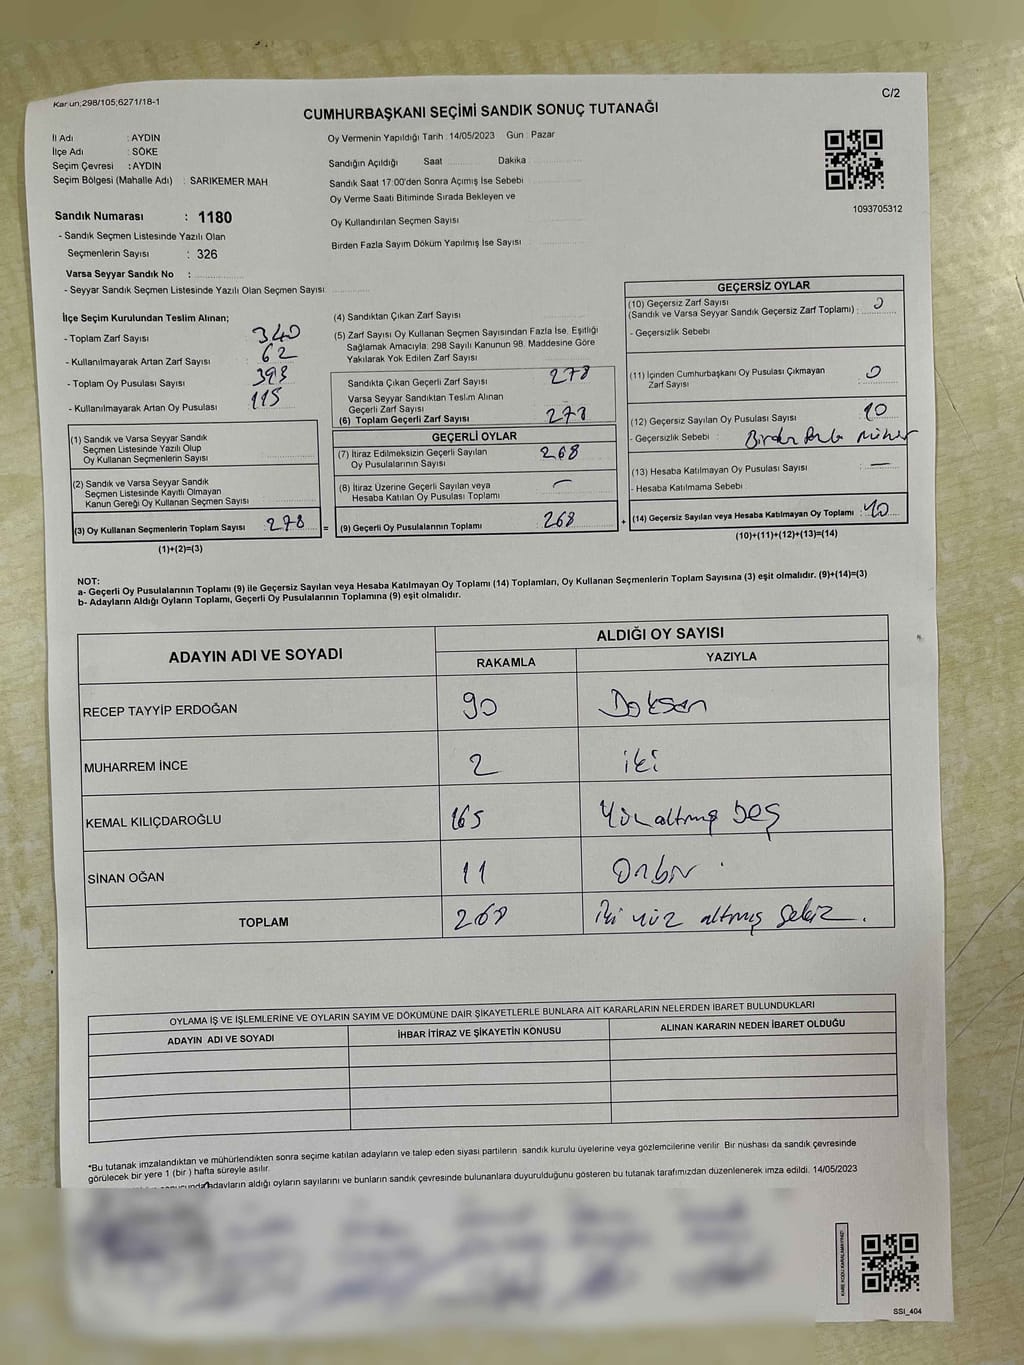 Kanun;298/105;6271/18-1
C/2
CUMHURBAŞKANI SEÇİMİ SANDIK SONUÇ TUTANAĞI
İl Adı : AYDIN
İlçe Adı : SÖKE
Seçim Çevresi : AYDIN
Seçim Bölgesi (Mahalle Adı) : SARIKEMER MAH
Oy Vermenin Yapıldığı Tarih : 14/05/2023 Gün : Pazar
Sandığın Açıldığı Saat Dakika
Sandık Saat 17:00'den Sonra Açımış İse Sebebi
Oy Verme Saati Bitiminde Sırada Bekleyen ve
Oy Kullandırılan Seçmen Sayısı
Birden Fazla Sayım Döküm Yapılmış İse Sayısı
1093705312
Sandık Numarası : 1180
- Sandık Seçmen Listesinde Yazılı Olan
Seçmenlerin Sayısı : 326
Varsa Seyyar Sandık No :
- Seyyar Sandık Seçmen Listesinde Yazılı Olan Seçmen Sayısı:
İlçe Seçim Kurulundan Teslim Alınan;
- Toplam Zarf Sayısı 340
- Kullanılmayarak Artan Zarf Sayısı 62
- Toplam Oy Pusulası Sayısı 393
- Kullanılmayarak Artan Oy Pusulası 115
(1) Sandık ve Varsa Seyyar Sandık
Seçmen Listesinde Yazılı Olup
Oy Kullanan Seçmenlerin Sayısı
(2) Sandık ve Varsa Seyyar Sandık
Seçmen Listesinde Kayıtlı Olmayan
Kanun Gereği Oy Kullanan Seçmen Sayısı
(3) Oy Kullanan Seçmenlerin Toplam Sayısı 278 =
(1)+(2)=(3)
(4) Sandıktan Çıkan Zarf Sayısı
(5) Zarf Sayısı Oy Kullanan Seçmen Sayısından Fazla İse, Eşitliği
Sağlamak Amacıyla; 298 Sayılı Kanunun 98. Maddesine Göre
Yakılarak Yok Edilen Zarf Sayısı
Sandıkta Çıkan Geçerli Zarf Sayısı 278
Varsa Seyyar Sandıktan Teslim Alınan
Geçerli Zarf Sayısı
(6) Toplam Geçerli Zarf Sayısı 278
GEÇERLİ OYLAR
(7) İtiraz Edilmeksizin Geçerli Sayılan
Oy Pusulalarının Sayısı 268
(8) İtiraz Üzerine Geçerli Sayılan veya
Hesaba Katılan Oy Pusulası Toplamı —
(9) Geçerli Oy Pusulalarının Toplamı 268 +
GEÇERSİZ OYLAR
(10) Geçersiz Zarf Sayısı
(Sandık ve Varsa Seyyar Sandık Geçersiz Zarf Toplamı) : 0
- Geçersizlik Sebebi
(11) İçinden Cumhurbaşkanı Oy Pusulası Çıkmayan
Zarf Sayısı 0
(12) Geçersiz Sayılan Oy Pusulası Sayısı 10
- Geçersizlik Sebebi : Birden fazla mühür
(13) Hesaba Katılmayan Oy Pusulası Sayısı —
- Hesaba Katılmama Sebebi
(14) Geçersiz Sayılan veya Hesaba Katılmayan Oy Toplamı : 10
(10)+(11)+(12)+(13)=(14)
NOT:
a- Geçerli Oy Pusulalarının Toplamı (9) ile Geçersiz Sayılan veya Hesaba Katılmayan Oy Toplamı (14) Toplamları, Oy Kullanan Seçmenlerin Toplam Sayısına (3) eşit olmalıdır. (9)+(14)=(3)
b- Adayların Aldığı Oyların Toplamı, Geçerli Oy Pusulalarının Toplamına (9) eşit olmalıdır.
ADAYIN ADI VE SOYADI
ALDIĞI OY SAYISI
RAKAMLA YAZIYLA
RECEP TAYYİP ERDOĞAN 90 Doksan
MUHARREM İNCE 2 iki
KEMAL KILIÇDAROĞLU 165 Yüzaltmış beş
SİNAN OĞAN 11 Onbir
TOPLAM 268 iki yüz altmış sekiz.
OYLAMA İŞ VE İŞLEMLERİNE VE OYLARIN SAYIM VE DÖKÜMÜNE DAİR ŞİKAYETLERLE BUNLARA AİT KARARLARIN NELERDEN İBARET BULUNDUKLARI
ADAYIN ADI VE SOYADI İHBAR İTİRAZ VE ŞİKAYETİN KONUSU ALINAN KARARIN NEDEN İBARET OLDUĞU
*Bu tutanak imzalandıktan ve mühürlendikten sonra seçime katılan adayların ve talep eden siyasi partilerin sandık kurulu üyelerine veya gözlemcilerine verilir. Bir nüshası da sandık çevresinde
görülecek bir yere 1 (bir ) hafta süreyle asılır.
adayların aldığı oyların sayılarını ve bunların sandık çevresinde bulunanlara duyurulduğunu gösteren bu tutanak tarafımızdan düzenlenerek imza edildi. 14/05/2023
KARE KODU KARALAMAYINIZ!
SSI_404